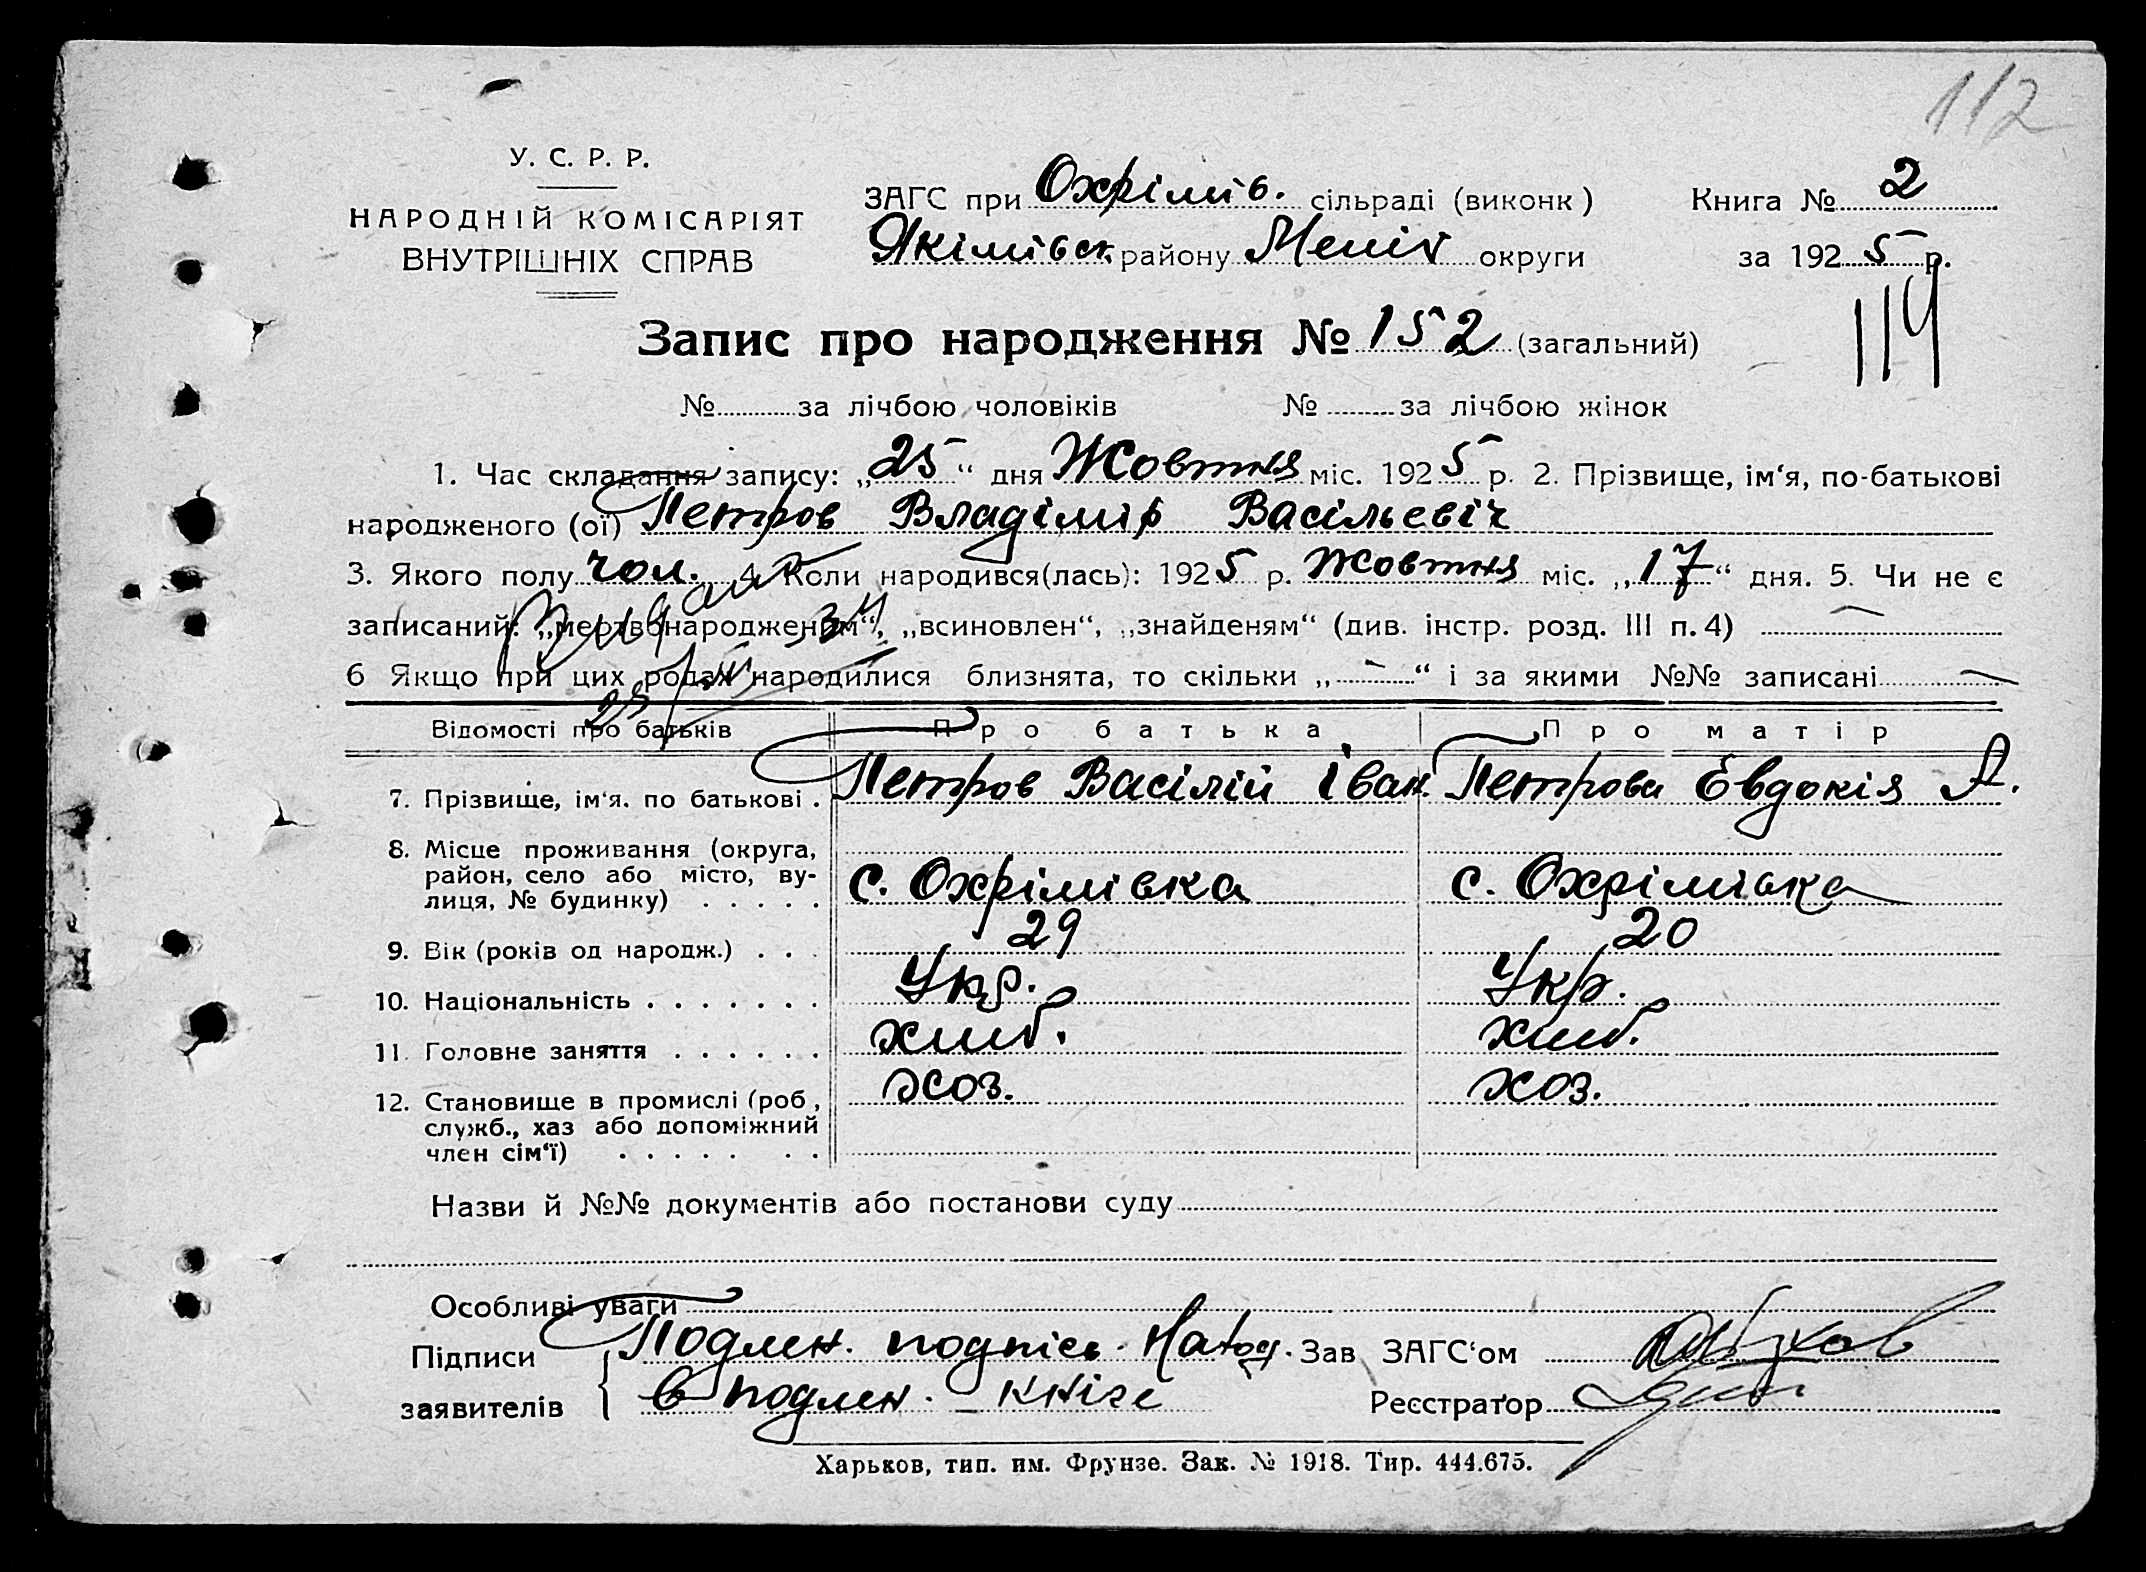 112
У. С. Р. Р.
НАРОДНІЙ КОМІСАРІЯТ
ВНУТРІШНІХ СПРАВ
ЗАГС при Охрімів. сільраді (виконк)
Якімівск району Меліт округи
Книга № 2
за 1925 р.
114
Запис про народження № 152 (загальний)
№ за лічбою чоловіків № за лічбою жінок
1. Час складання запису: „25“ дня Жовтня міс. 1925 р. 2. Прізвище, ім‘я, по-батькові
народженого (ої) Петров Владімір Васільевіч
3. Якого полу чол. 4. Коли народився(лась): 1925 р. Жовтня міс. „17“ дня. 5. Чи не є
записаний: „мертвонародженим“, „всиновлен“, „знайденям“ (див. інстр. розд. III п. 4)
6 Якщо при цих родах народилися близнята, то скільки „—“ і за якими №№ записані
Відомості про батьків Про батька Про матір
7. Прізвище, ім‘я. по батькові . Петров Васілій Іван. Петрова Евдокія А.
8. Місце проживання (округа,
район, село або місто, ву-
лиця, № будинку) . . . . . с. Охрімівка с. Охрімівка
9. Вік (років од народж.) . . . 29 20
10. Національність . . . . . . . Укр. Укр.
11. Головне заняття . . . . . . хліб. хліб.
12. Становище в промислі (роб,
служб., хаз або допоміжний
член сім‘ї) . . . . . . . хоз. хоз.
Назви й №№ документів або постанови суду
Особливі уваги
Підписи
заявителів
Подлен. подпісь
в подлен. кнізе
Зав. ЗАГС‘ом
Реєстраґор
Харьков, тип. им. Фрунзе. Зак. № 1918. Тир. 444.675.